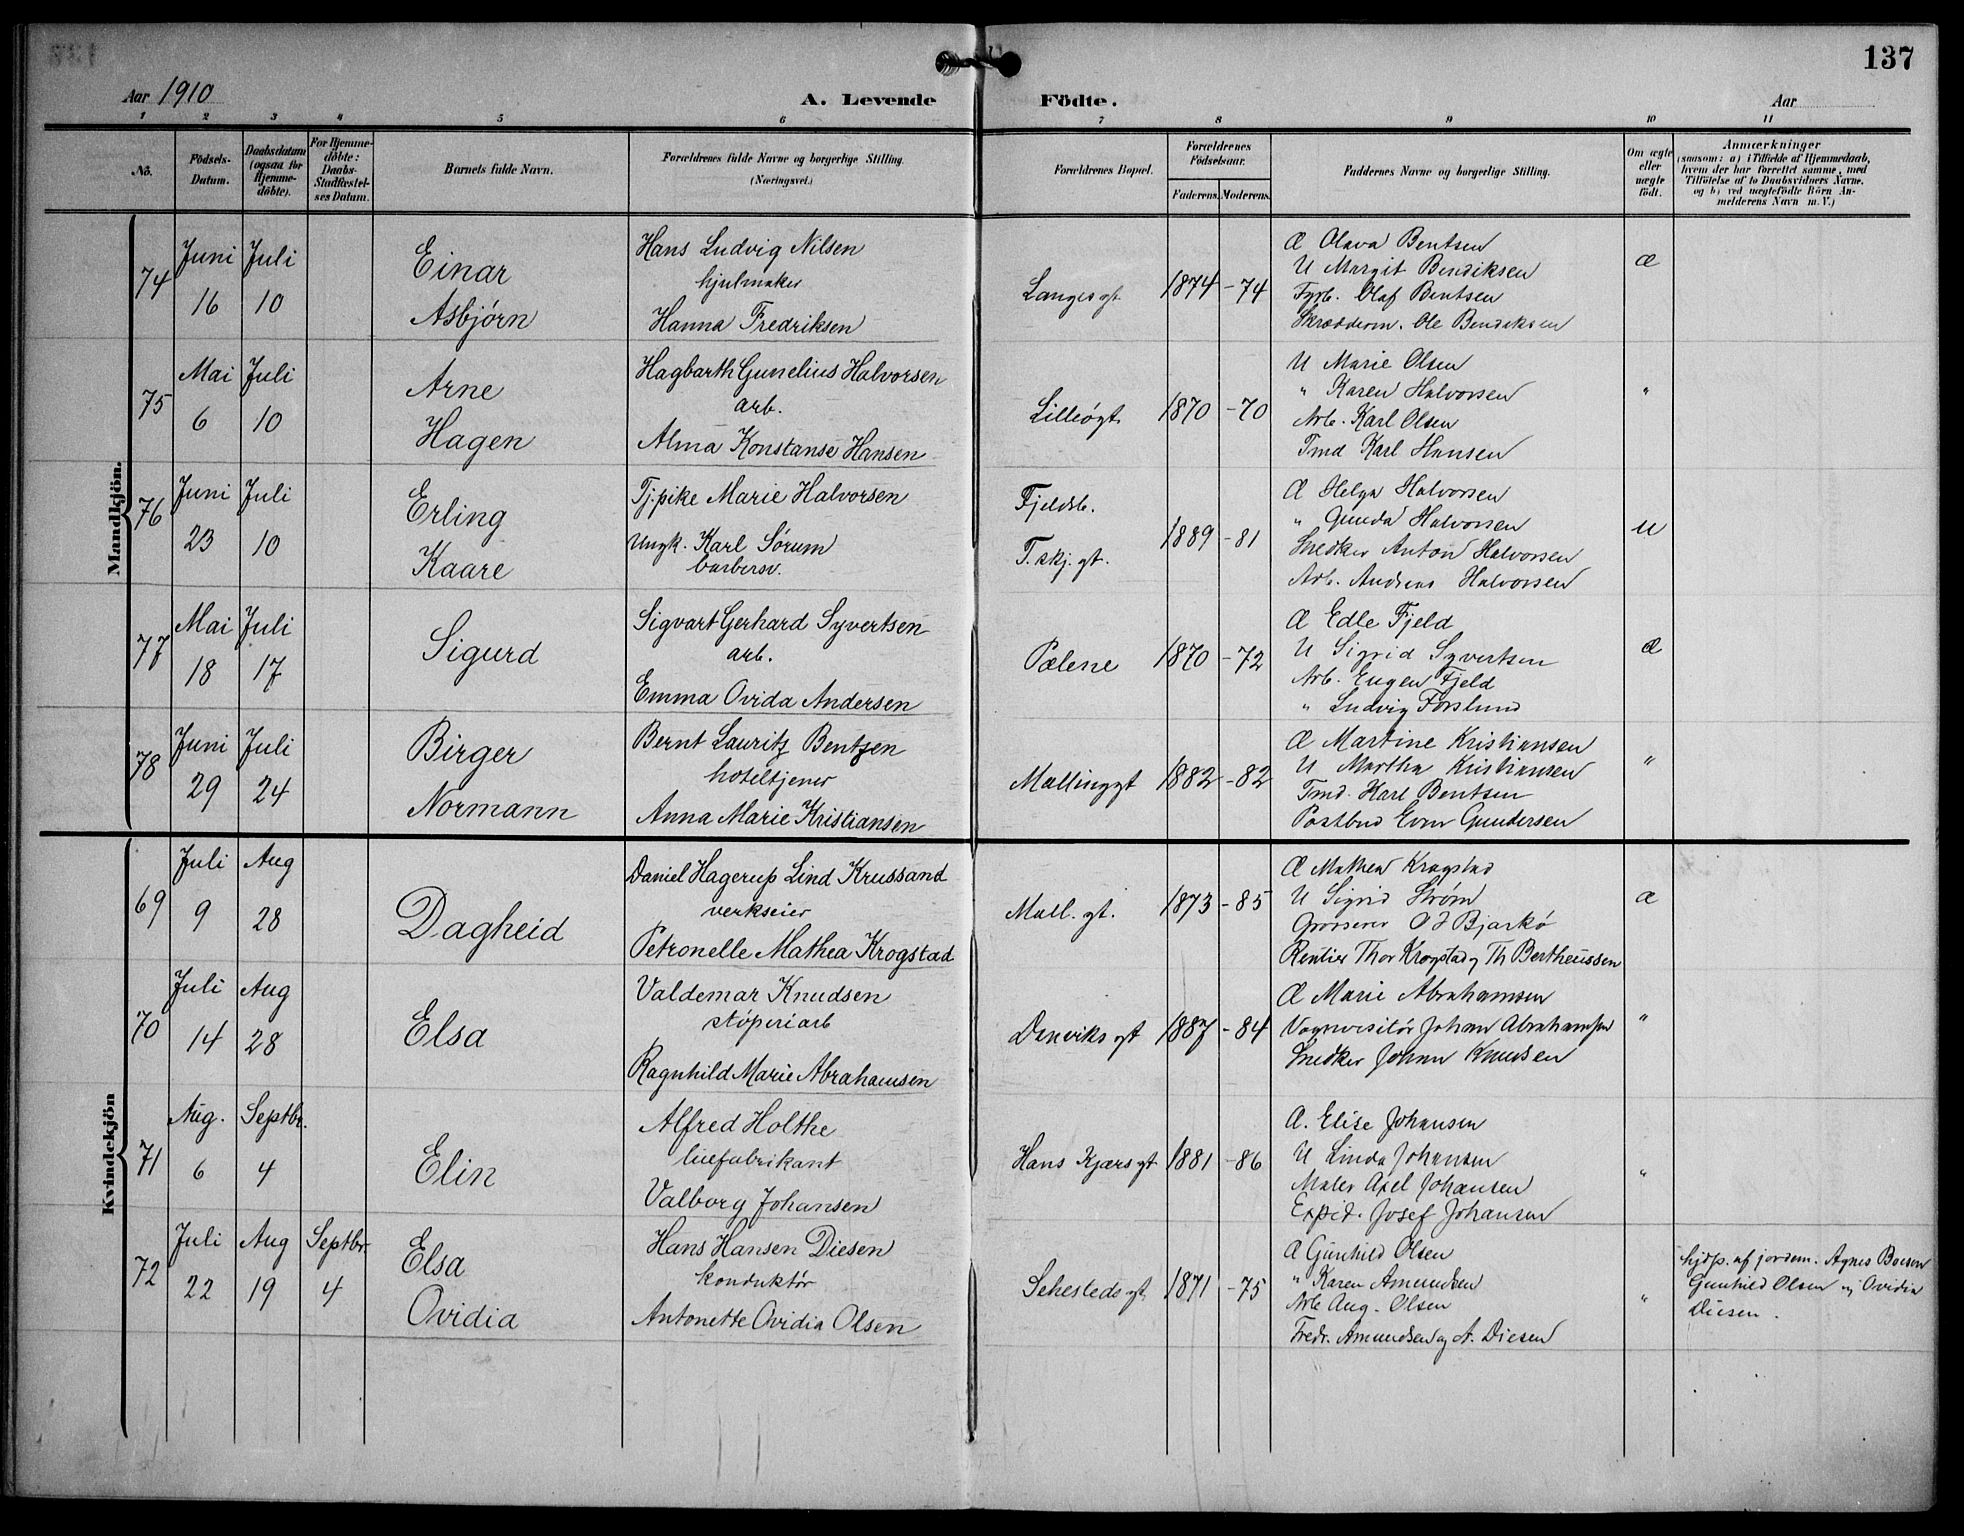 137
Aar 1910
A. Levende Födte.
Aar
1 2 3 4 5 6 7 8 9 10 11
Nö.
Födsels-Datum.
Daabsdatum (ogsaa for Hjemmedöbte).
For Hjemmedöbte: Daabs-Stadfæstelses Datum.
Barnets fulde Navn.
Forældrenes fulde Navne og borgerlige Stilling. (Næringsvei.)
Forældrenes Bopæl.
Forældrenes Födselsaar.
Faderens. Moderens.
Faddernes Navne og borgerlige Stilling.
Om ægte eller uægte födt.
Anmærkninger
(saasom: a) i Tilfælde af Hjemmedaab, hvem der har forrettet samme, med Tilföielse af to Daabsvidners Navne, og b) ved uægtefödte Börn Anmelderens Navn m. V.)
Mandkjön.
74 Juni 16 Juli 10
Einar Asbjørn
Hans Ludvig Nilsen
hjulmaker
Hanna Fredriksen
Langes gt. 1874 - 74
Æ Olava Bentsen
U Margit Bendiksen
Fyrb. Olaf Bentsen
Skrædderm. Ole Bendiksen
Æ
75 Mai 6 Juli 10
Arne Hagen
Hagbarth Gunelius Halvorsen
arb.
Alma Konstanse Hansen
Lilleøgt. 1870 - 70
U Marie Olsen
" Karen Halvorsen
Arb. Karl Olsen
Tmd Karl Hansen
"
76 Juni 23 Juli 10
Erling Kaare
Tj.pike Marie Halvorsen
Ungk. Karl Sørum
barbersv.
Fjeldsb.
T.skj.gt. 1889 - 81
Æ Helga Halvorsen
" Gunda Halvorsen
Snedker Anton Halvorsen
Arb. Andreas Halvorsen
U
77 Mai 18 Juli 17
Sigurd
Sigvart Gerhard Syvertsen
arb.
Emma Ovida Andersen
Pælene 1870 - 72
Æ Edle Fjeld
U Sigrid Syvertsen
Arb. Eugen Fjeld
" Ludvig Forslund
Æ
78 Juni 29 Juli 24
Birger Normann
Bernt Lauritz Bentzen
hoteltjener
Anna Marie Kristiansen
Mallinggt 1882 - 82
Æ Martine Kristiansen
U Martha Kristiansen
Tmd. Karl Bentsen
Postbud Even Gundersen
"
Kvindekjön
69 Juli 9 Aug 28
Dagheid
Daniel Hagerup Lind Krussand
verkseier
Petronelle Mathea Krogstad
Mall. gt. 1873 - 85
Æ Mathea Krogstad
U Sigrid Strøm
Grosserer O J Bjarkø
Rentier Thor Krogstad og Th Bertheussen
Æ
70 Juli 14 Aug 28
Elsa
Valdemar Knudsen
støperiarb
Ragnhild Marie Abrahamsen
Danviks gt 1887 - 84
Æ Marie Abrahamsen
Vognvisitør Johan Abrahamsen
Snedker Johan Knudsen
"
71 Aug. 6 Septbr. 4
Elin
Alfred Holthe
luefabrikant
Valborg Johansen
Hans Kjærs gt 1881 - 86
Æ. Elise Johansen
U Linda Johansen
Maler Axel Johansen
Exped. Josef Johansen
"
72 Juli 22 Aug 19 Septbr. 4
Elsa Ovidia
Hans Hansen Diesen
konduktør
Antonette Ovidia Olsen
Sehesteds gt. 1871 - 75
Æ Gunhild Olsen
" Karen Amundsen
Arb Aug. Olsen
Fredr. Amundsen og A. Diesen
"
hjdp. af jordem. Agnes Boesen
Gunhild Olsen og Ovidia
Diesen.